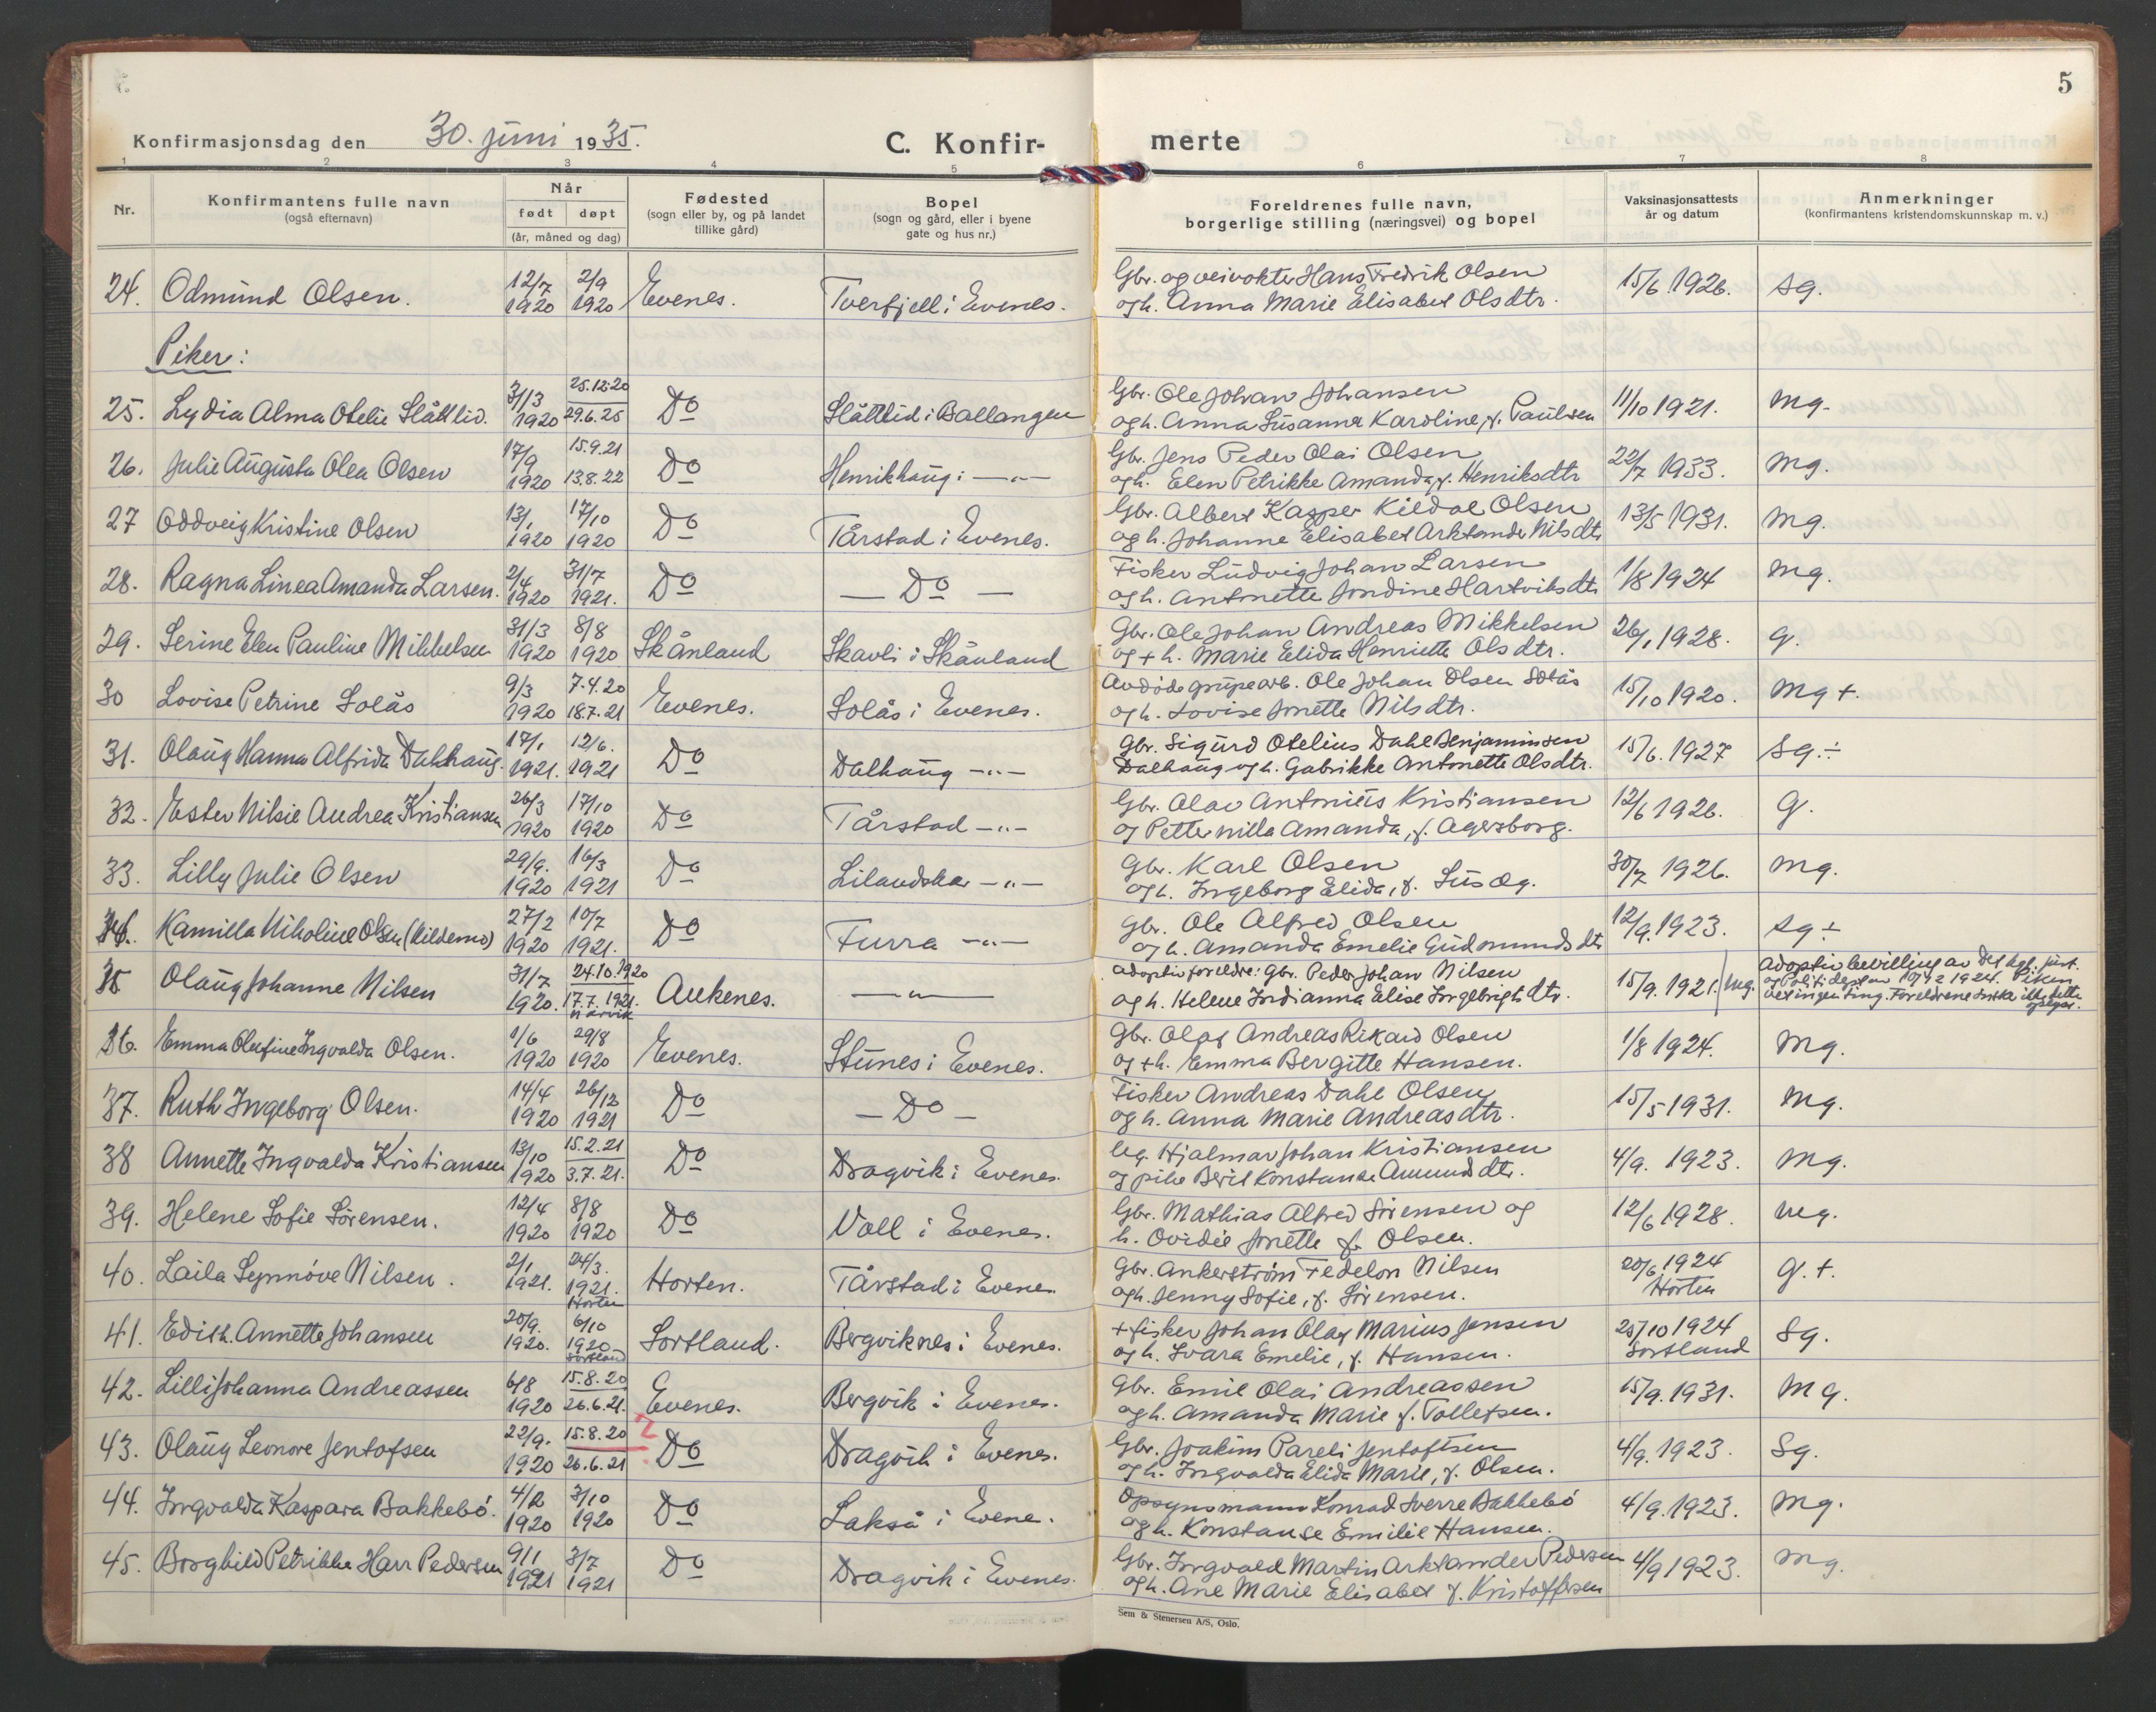 5
Konfirmasjonsdag den 30. juni 1935.
C. Konfir- merte
1 2 3 4 5 6 7 8
Nr.
Konfirmantens fulle navn
(også efternavn)
Når
født døpt
(år, måned og dag)
Fødested
(sogn eller by, og på landet
tillike gård)
Bopel
(sogn og gård, eller i byene
gate og hus nr.)
Foreldrenes fulle navn,
borgerlige stilling (næringsvei) og bopel
Vaksinasjonsattests
år og datum
Anmerkninger
(konfirmantens kristendomskunnskap m. v.)
24. Odmund Olsen. 12/7 1920 2/9 1920 Evenes. Tverfjell i Evenes.
Gbr. og veivokter Hans Fredrik Olsen
og h. Anna Marie Elisabet Olsdtr. 15/6 1926. Sg.
Piker:
25. Lydia Alma Otelie Slåttlid. 31/3 1920 25.12.20 29.6.25 Do Slåttlid i Ballangen
Gbr. Ole Johan Johansen
og h. Anna Susanna Karoline, f. Paulsen 11/10 1921. Mg.
26. Julie Augusta Olea Olsen 17/9 1920 15.9.21 13.8.22 Do Henrikhaug i —"—
Gbr. Jens Peder Olai Olsen
og h. Elen Petrikke Amanda, f. Henriksdtr 22/7 1933. Mg.
27 Oddveig Kristine Olsen 13/1 1920 17/10 1920 Do Tårstad i Evenes.
Gbr. Albert Kasper Kildal Olsen
og h. Johanne Elisabet Arktander Nilsdtr 13/5 1931. Mg.
28. Ragna Linea Amanda Larsen. 2/4 1920 31/7 1921. Do — Do —
Fisker Ludvig Johan Larsen
og h. Antonette Jondine Hartviksdtr 1/8 1924 Mg.
29. Serine Elen Pauline Mikkelsen 31/3 1920 8/8 1920 Skånland Skavli i Skånland
Gbr. Ole Johan Andreas Mikkelsen
og + h. Marie Elida Henriette Olsdtr. 26/1 1928. G.
30 Lovise Petrine Solås 9/3 1920 7.4.20 18.7.21 Evenes. Solås i Evenes.
Avdøde grupearb. Ole Johan Olsen Solås
og h. Lovise Jonette Nilsdtr. 15/10 1920. Mg +.
31. Olaug Hanna Alfrida Dalhaug. 17/1 1921. 12/6. 1921 Do Dalhaug —"—
Gbr. Sigurd Otelius Dahl Benjaminsen
Dalhaug og h. Gabrikke Antonette Olsdtr. 15/6. 1927 Sg. ÷
32. Ester Nilsie Andrea Kristiansen 26/3 1920 17/10 1920 Do Tårstad —"—
Gbr. Olav Antonius Kristiansen
og Petternilla Amanda, f. Agersborg. 12/6 1926. G.
33. Lilly Julie Olsen 29/9. 1920 16/3 1921 Do Lilandskar —"—
Gbr. Karl Olsen
og h. Ingeborg Elida, f. 30/7 1926. Mg.
34. Kamilla Nikoline Olsen (Kildemo) 27/2 1920 10/7 1921. Do Furra —"—
Gbr. Ole Alfred Olsen
og h. Amanda Emelie Gudmundsdtr 12/9. 1923. Sg ÷
35 Olaug Johanne Nilsen 31/7 1920. 24.10.1920 17.7.1921. Narvik Ankenes. —"—
Adoptivforeldre: Gbr. Peder Johan Nilsen
og h. Helene Jordianna Elise Ingebrigtsdtr. 15/9. 1921. Mg.
Adoptivbevilling av Det kgl. just.
og Politidept av 10/12 1924. Piken
vet ingenting. Foreldrene ikke dette
36. Emma Olufine Ingvalda Olsen. 1/6 1920 29/8 1920 Evenes. Stunes i Evenes.
Gbr. Olaf Andreas Rikard Olsen
og + h. Emma Bergitte Hansen. 1/8 1924. Mg.
37. Ruth Ingeborg Olsen. 14/4 1920 26/12 1921 Do — Do —
Fisker Andreas Dahl Olsen
og h. Anna Marie Andreasdtr. 15/5 1931. Mg.
38 Annette Ingvalda Kristiansen 13/10 1920 15.2.21 3.7.21. Do Dragvik i Evenes.
Ug. Hjalmar Johan Kristiansen
og pike Beril Konstanse Amundsdtr. 4/9. 1923. Mg.
39. Helene Sofie Sörensen. 12/4 1920 8/8 1920 Do Voll i Evenes.
Gbr. Mathias Alfred Sörensen og
h. Ovidie Jonette f. Olsen. 12/6 1928. Mg.
40. Laila Synnöve Nilsen. 2/1 1921. 24/3. 1921. Horten Horten. Tårstad i Evenes.
Gbr. Ankerström Fedelon Nilsen
og h. Jenny Sofie, f. Sörensen. 20/6 1924 Horten G. +.
41. Edith. Annette Johansen 20/9. 1920. 6/10 1920 Sortland Sortland. Bergviknes i Evenes.
+ fisker Johan Olaf Marius Jensen
og h. Svara Emelie, f. Hansen. 25/10 1924 Sortland Sg.
42. Lilli Johanna Andreassen 6/8 1920 15.8.20 26.6.21. Evenes. Bergvik i Evenes.
Gbr. Emil Olai Andreassen
og h. Amanda Marie f. Tollefsen. 15/9. 1931. Mg.
43. Olaug Leonore Jentofsen 22/9. 1920 15.8.20 26.6.21 ? Do Dragvik i Evenes.
Gbr. Joakim Pareli Jentoftsen
og h. Ingvalda Elida Marie, f. Olsen. 4/9. 1923. Sg.
44. Ingvalda Kaspara Bakkebö. 4/2 1920 3/10 1920 Do Lakså i Evene.
Opsynsmann Konrad Sverre Bakkebö
og h. Konstanse Emilie Hansen. 4/9. 1923. Mg.
45. Borghild Petrikke Harr Pedersen 9/1 1921 3/7 1921 Do Dragvik i Evenes.
Gbr. Ingvald Martin Arktander Pedersen
og h. Ane Marie Elisabet f. Kristoffersen 4/9 1923. Mg.
Sem & Stenersen A/S, Oslo.